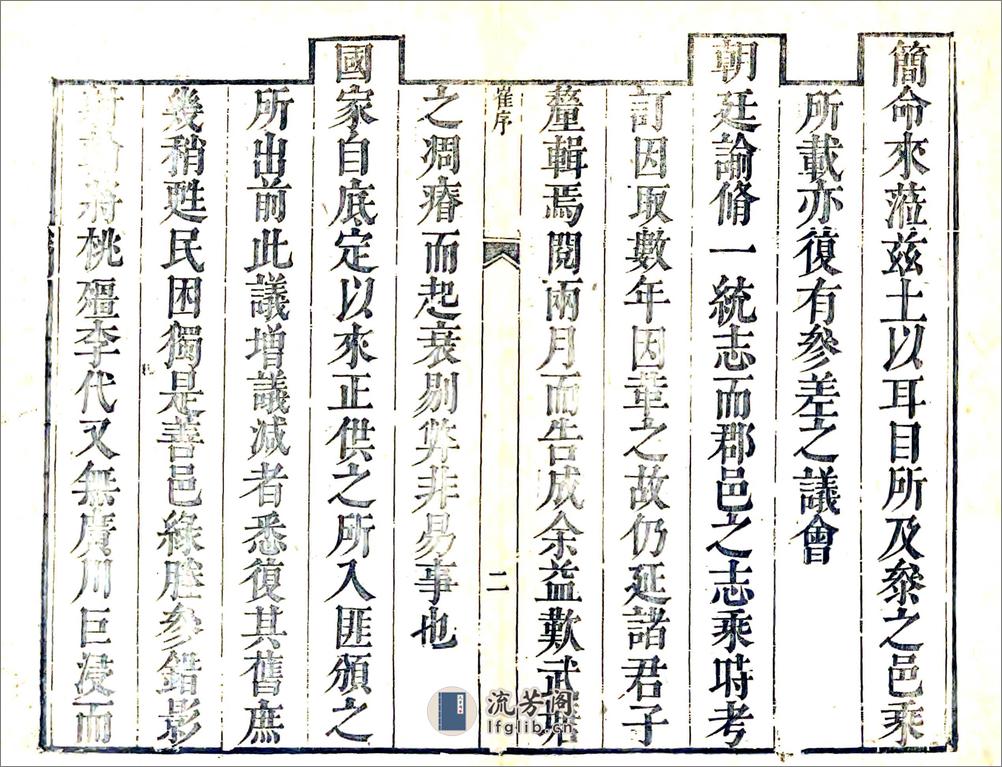 簡命來蒞玆土以耳目所及叅之邑乘
所載亦復有參差之議會
朝廷諭脩一統志而郡邑之志乘時考
訂因取數年因革之故仍延諸君子
釐輯焉閱兩月而告成余益歎武
崔序
二
之凋瘠而起衰剔弊非易事也
國家自底定以來正供之所入匪頒之
所出前此議增議減者悉復其舊庶
幾稍甦民困獨是善邑綠塍參錯影
射將桃殭李代又無廣川巨浸而
流芳阁
lfglib.cn